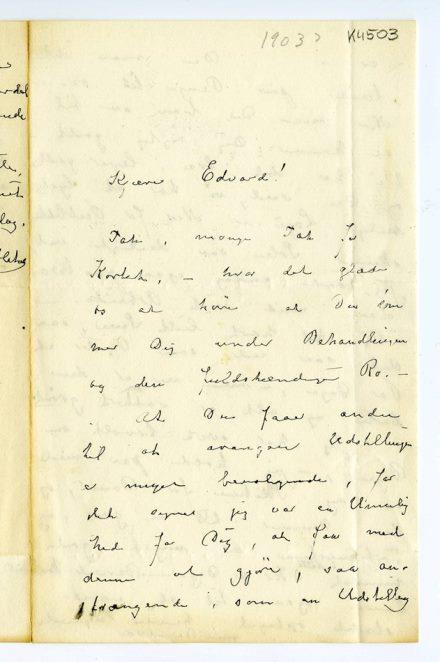 1903?
K4503
Kjære Edvard!
Tak, mange Tak for
Kortet, – hvor det glæder
os at høre at Du kom
mer Dig under Behandlingen
og den fuldstændige Ro. –
At Du faaer andre
til at arangere Udstillingen
er meget beroligende, for
det synes jeg var en Umulig
hed for Dig, at faa med
denne at gjøre, saa an-
strængende, som en Udstilling